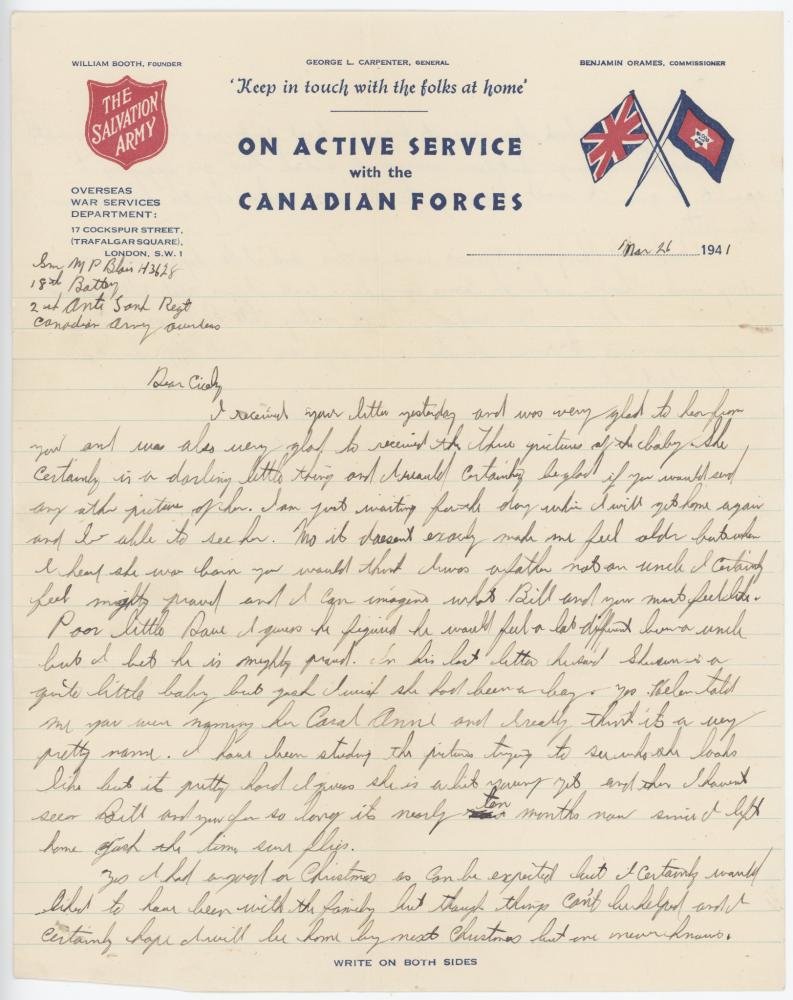 WILLIAM BOOTH, FOUNDER
GEORGE L. CARPENTER, GENERAL
BENJAMIN ORAMES, COMMISSIONER
THE
SALVATION
ARMY
'Keep in touch with the folks at home'
ON ACTIVE SERVICE
with the
CANADIAN FORCES
OVERSEAS
WAR SERVICES
DEPARTMENT:
17 COCKSPUR STREET,
(TRAFALGAR SQUARE),
LONDON, S.W. 1
Mar 26 1941
Gnr M P Blair H3628
18th Battery
2nd Anti Tank Regt
Canadian Army overseas
Dear Cicely
I received your letter yesterday and was very glad to hear from
you and was also very glad to received the three pictures of the baby. She
certainly is a darling little thing and I would certainly be glad if you would send
any other picture of her. I am just waiting for the day when I will get home again
and be able to see her. No it doesent exacly make me feel older but when
I heard she was born you would think I was a father not an uncle I certainly
feel mighty proud and I can imagine what Bill and you must feel like.
Poor little Dave I guess he figured he would feel a lot different been a uncle
but I bet he is mighty proud. In his last letter he said She sure is a
quite little baby but gosh I wish she had been a boy. Yes Helen told
me you were naming her Carol Anne and I really think it's a very
pretty name. I have been studing the pictures trying to see who she looks
like but it pretty hard I guess she is a bit young yet and then I havent
seen Bill and you for so long its nearly ten months now since I left
home gosh the time sure flys.
Yes I had as good a Christmas as can be expected but I certainly would
liked to have been with the family but though things can't be helped and I
certainly hope I will be home by next Christmas but one never knows.
WRITE ON BOTH SIDES